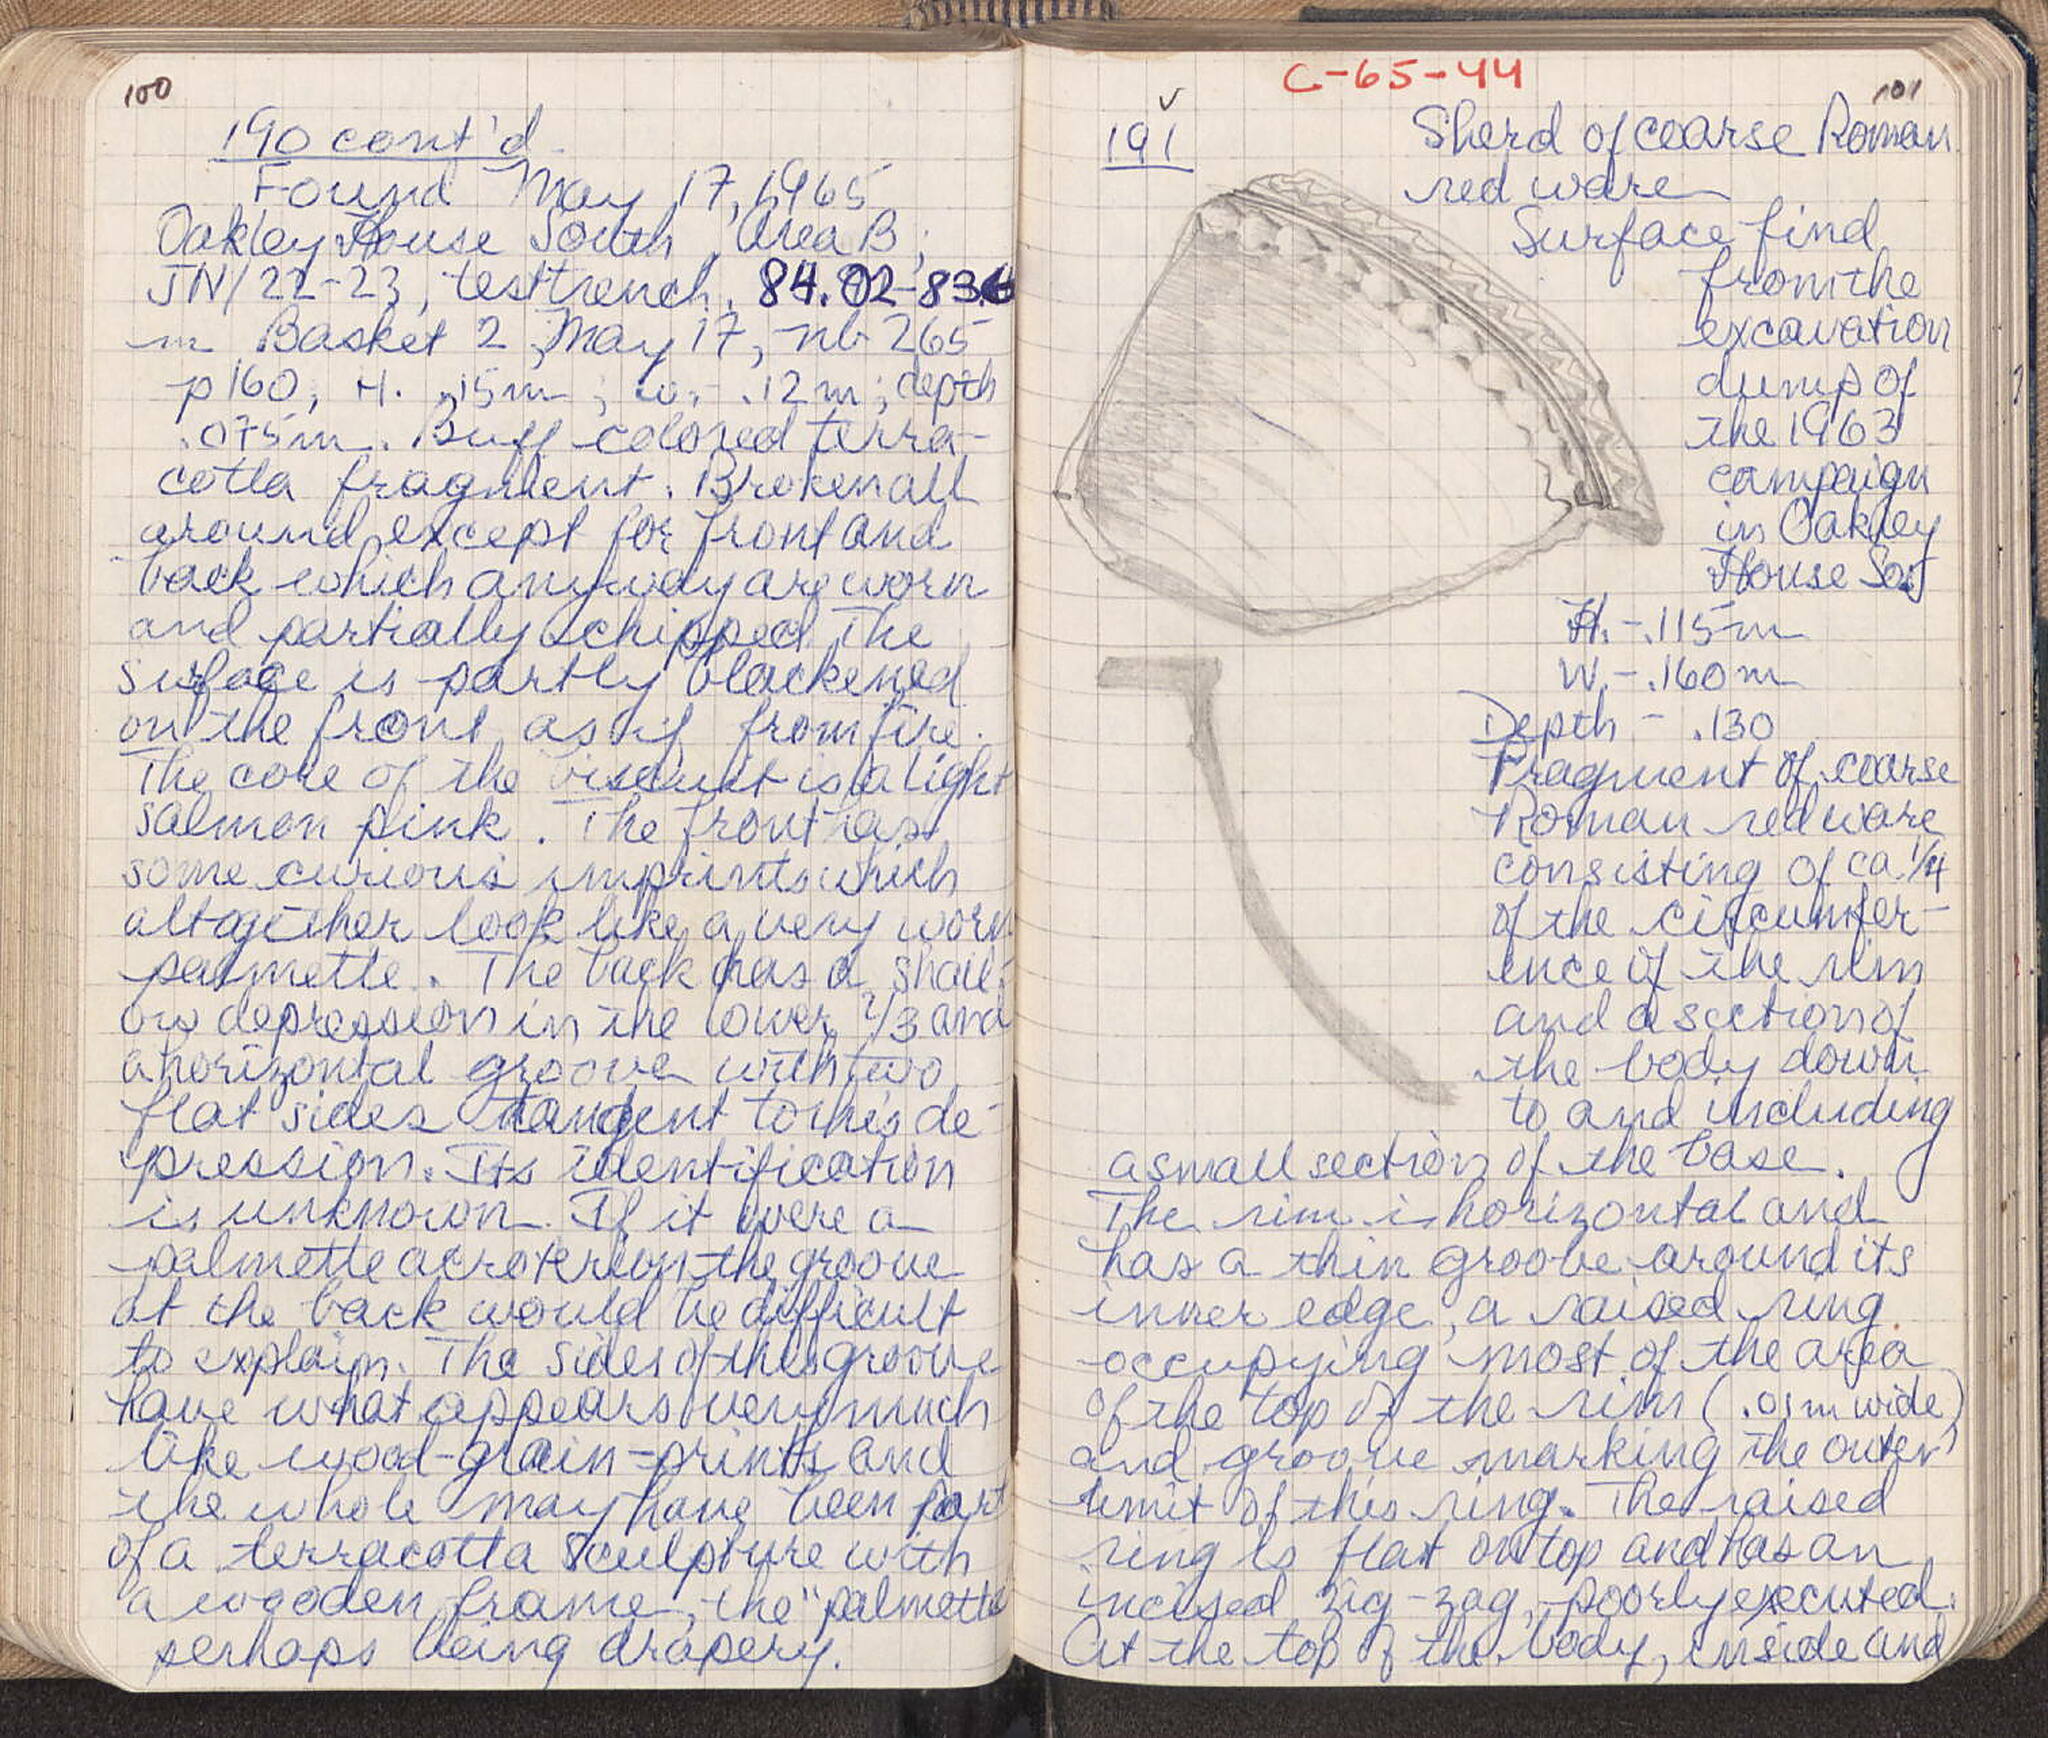 100
190 cont'd
Found May 17, 1965
Oakley House South, Area B;
JN/22-23, test trench, 84.02-83.6
m Basket 2, May 17, nb 265
p 160, H. .15m; w. - .12m; depth
.075m. Buff colored terra-
cotta fragment. Broken all
around except for front and
back which anyway are worn
and partially chipped. The
surface is partly blackened
on the front as if from fire.
The core of the biscuit is a light
salmon pink. The front has
some curious imprints which
altogether look like a very worn
palmette. The back has a shall-
ow depression in the lower 2/3 and
a horizontal groove with two
flat sides tangent to this de-
pression. Its identification
is unknown. If it were a
palmette acroterion the groove
at the back would be difficult
to explain. The sides of this groove
have what appears very much
like wood-grain-prints and
the whole may have been part
of a terracotta sculpture with
a wooden frame, the "palmette
perhaps being drapery.
C-65-44
101
191
Sherd of coarse Roman
red ware
Surface find
from the
excavation
dump of
the 1963
campaign
in Oakley
House So.
H. - .115m
W. - .160m
Depth - .130
Fragment of coarse
Roman red ware
consisting of ca. 1/4
of the circumfer-
ence of the rim
and a section of
the body down
to and including
a small section of the base.
The rim is horizontal and
has a thin groove around its
inner edge, a raised ring
occupying most of the area
of the top of the rim (.01m wide)
and groove marking the outer
limit of this ring. The raised
ring is flat on top and has an
incised zig-zag, poorly executed.
At the top of the body, inside and